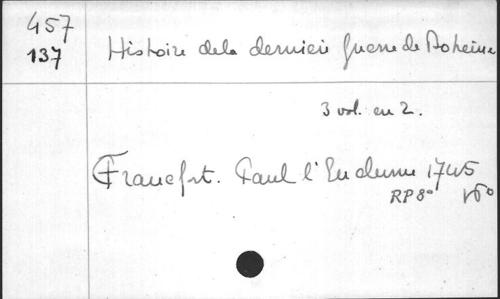 457
137
Histoire de la derniere guerre de Boheme
3 vol. en 2.
Francfort. Paul l'Enclume 1745
RP 8°